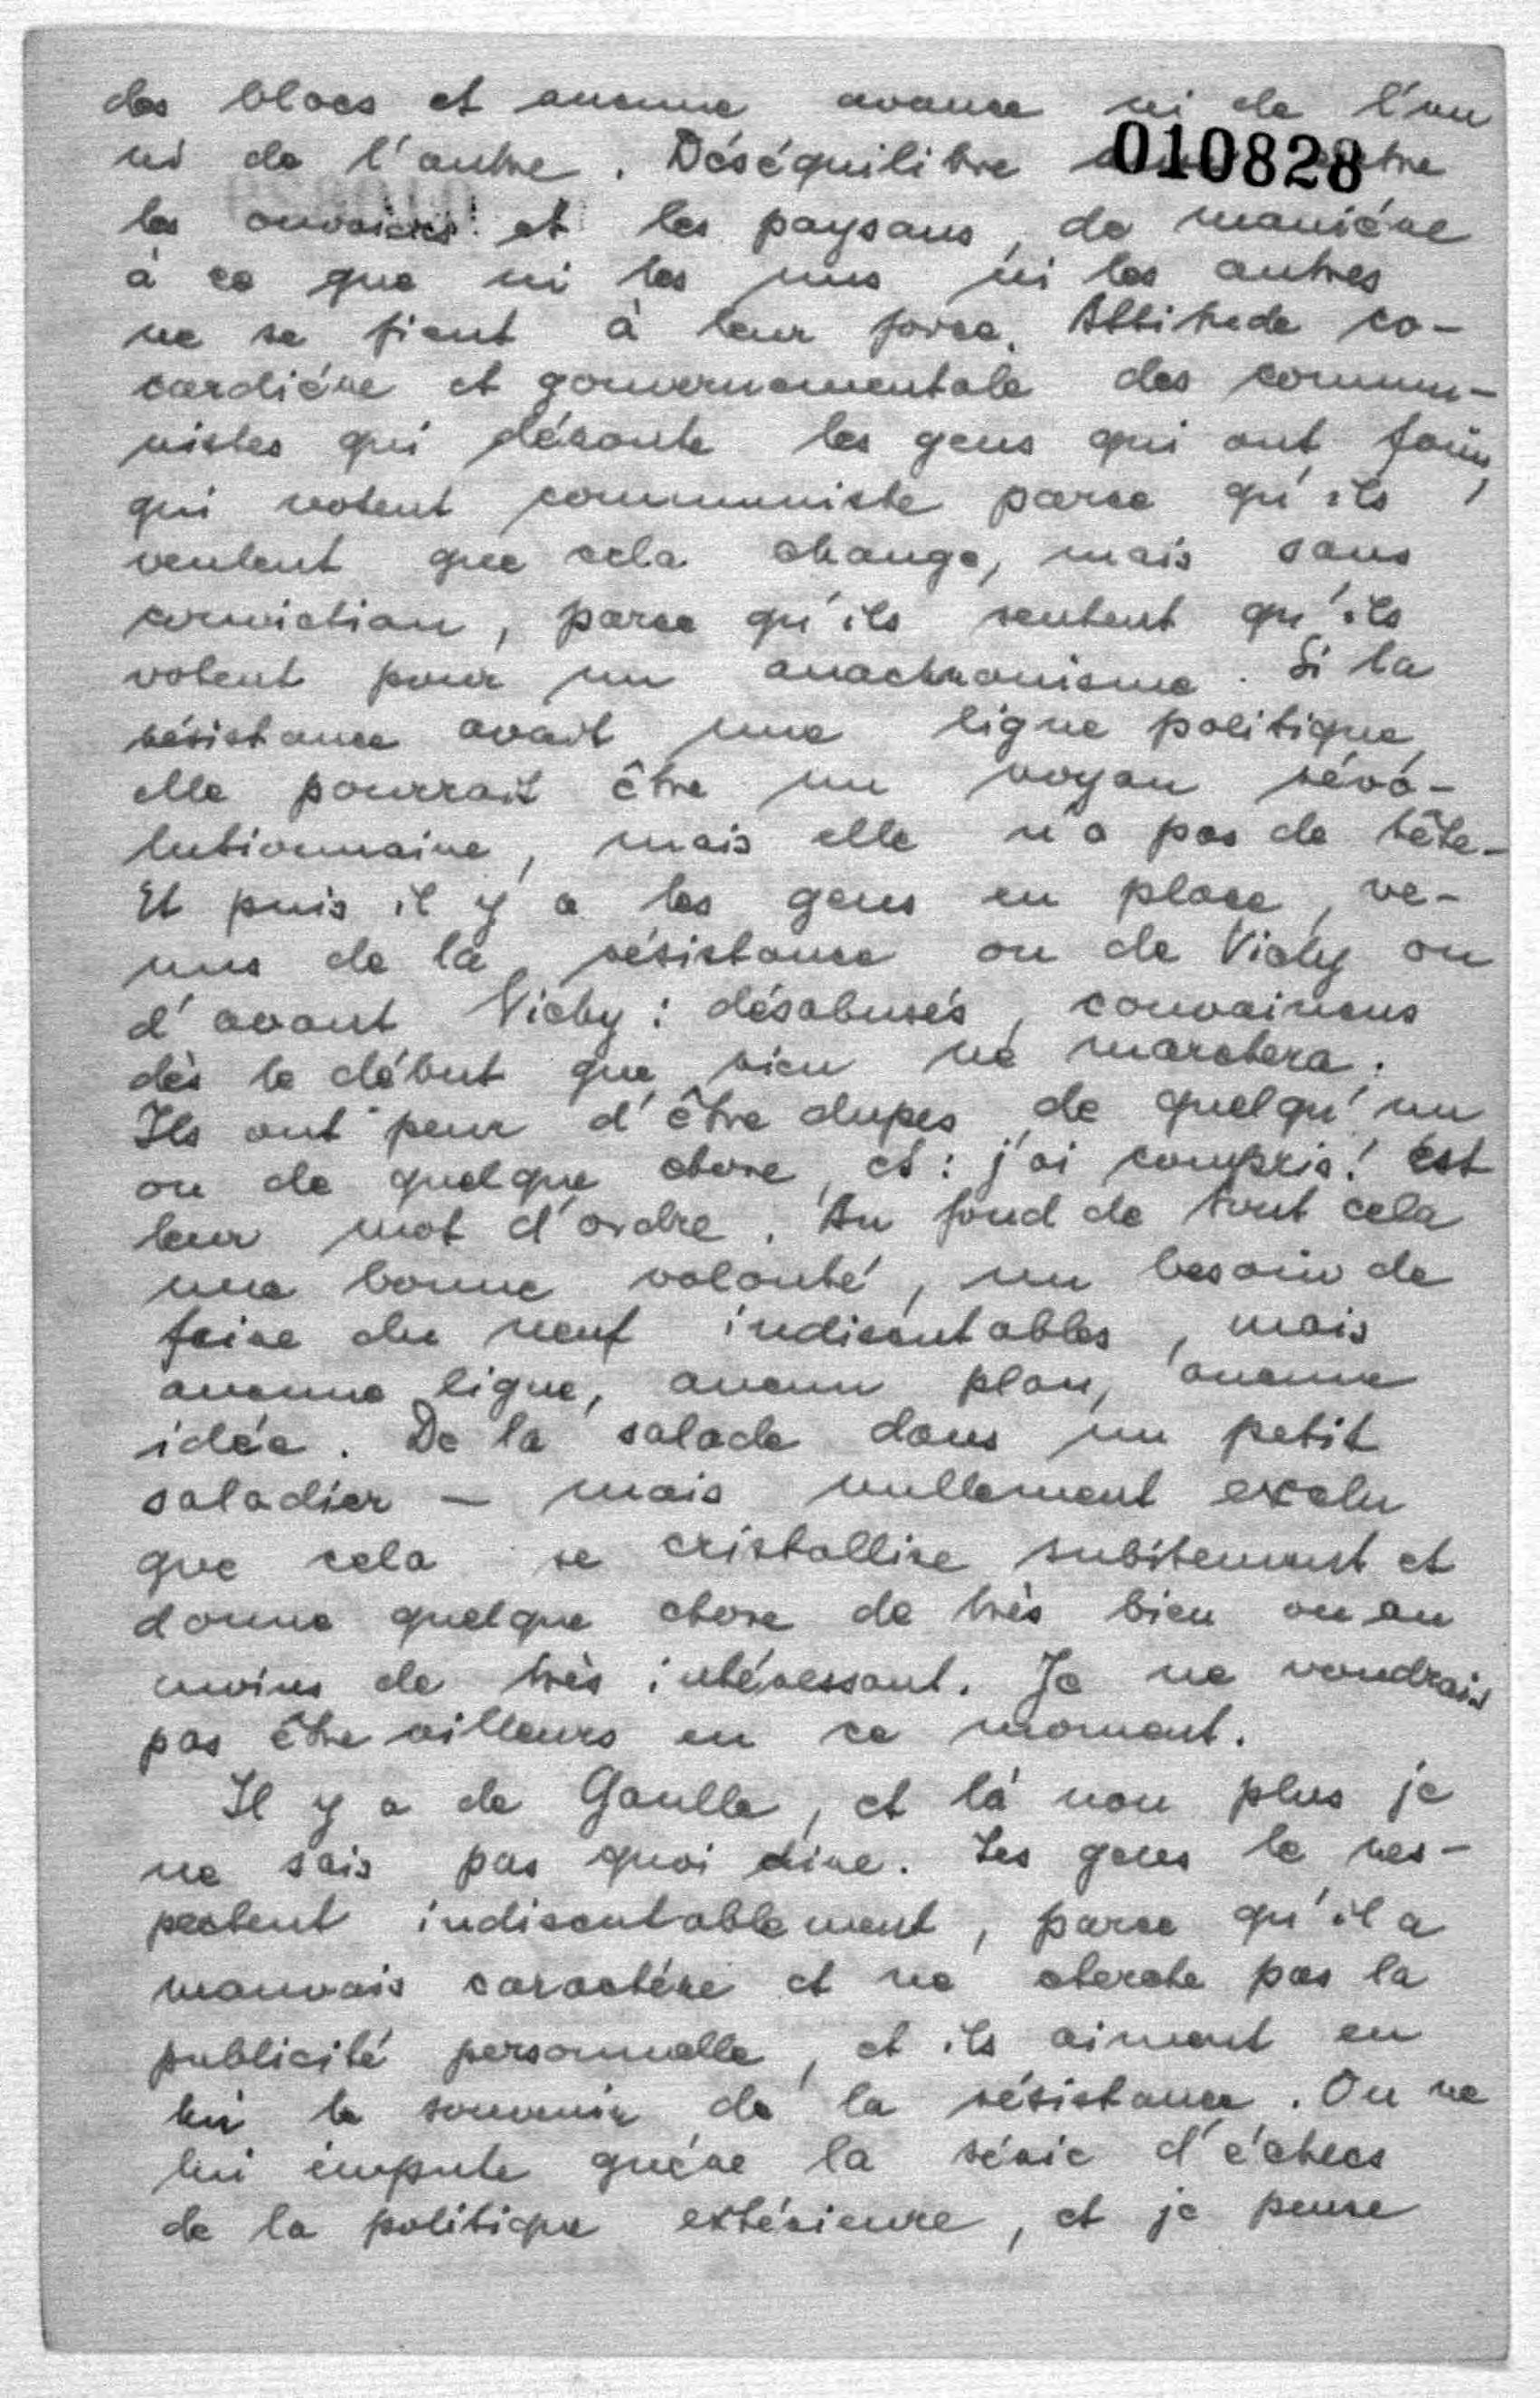 des blocs et aucune avance ni de l'un
ni de l'autre. Déséquilibre
010828
les ouvriers et les paysans, de manière
à ce que ni les uns ni les autres
ne se fient à leur force. Attitude co-
cardière et gouvernementale des commu-
nistes qui déroute les gens qui ont faim,
qui votent communiste parce qu'ils
veulent que cela change, mais sans
conviction, parce qu'ils sentent qu'ils
votent pour un anachronisme. Si la
résistance avait une ligne politique,
elle pourrait être un noyau révo-
lutionnaire, mais elle n'a pas de tête.
Et puis il y a les gens en place, ve-
nus de la résistance ou de Vichy ou
d'avant Vichy : désabusés, convaincus
dès le début que rien ne marchera.
Ils ont peur d'être dupes de quelqu'un
ou de quelque chose, et : j'ai compris ! est
leur mot d'ordre. Au fond de tout cela
une bonne volonté, un besoin de
faire du neuf indiscutables, mais
aucune ligne, aucun plan, aucune
idée. De la salade dans un petit
saladier — mais nullement exclu
que cela se cristallise subitement et
donne quelque chose de très bien ou au
moins de très intéressant. Je ne voudrais
pas être ailleurs en ce moment.
Il y a de Gaulle, et là non plus je
ne sais pas quoi dire. Les gens le res-
pectent indiscutablement, parce qu'il a
mauvais caractère et ne cherche pas la
publicité personnelle, et ils aiment en
lui le souvenir de la résistance. On ne
lui impute guère la série d'échecs
de la politique extérieure, et je pense